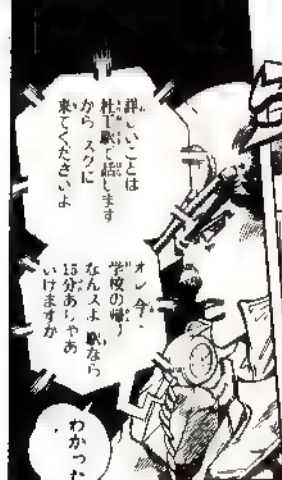 詳しいことは
杜王駅で話します
から スグに
来てくださいよ
オレ 今、
学校の帰り
なんスよ 駅なら
15分ありゃあ
いけますから
わかった